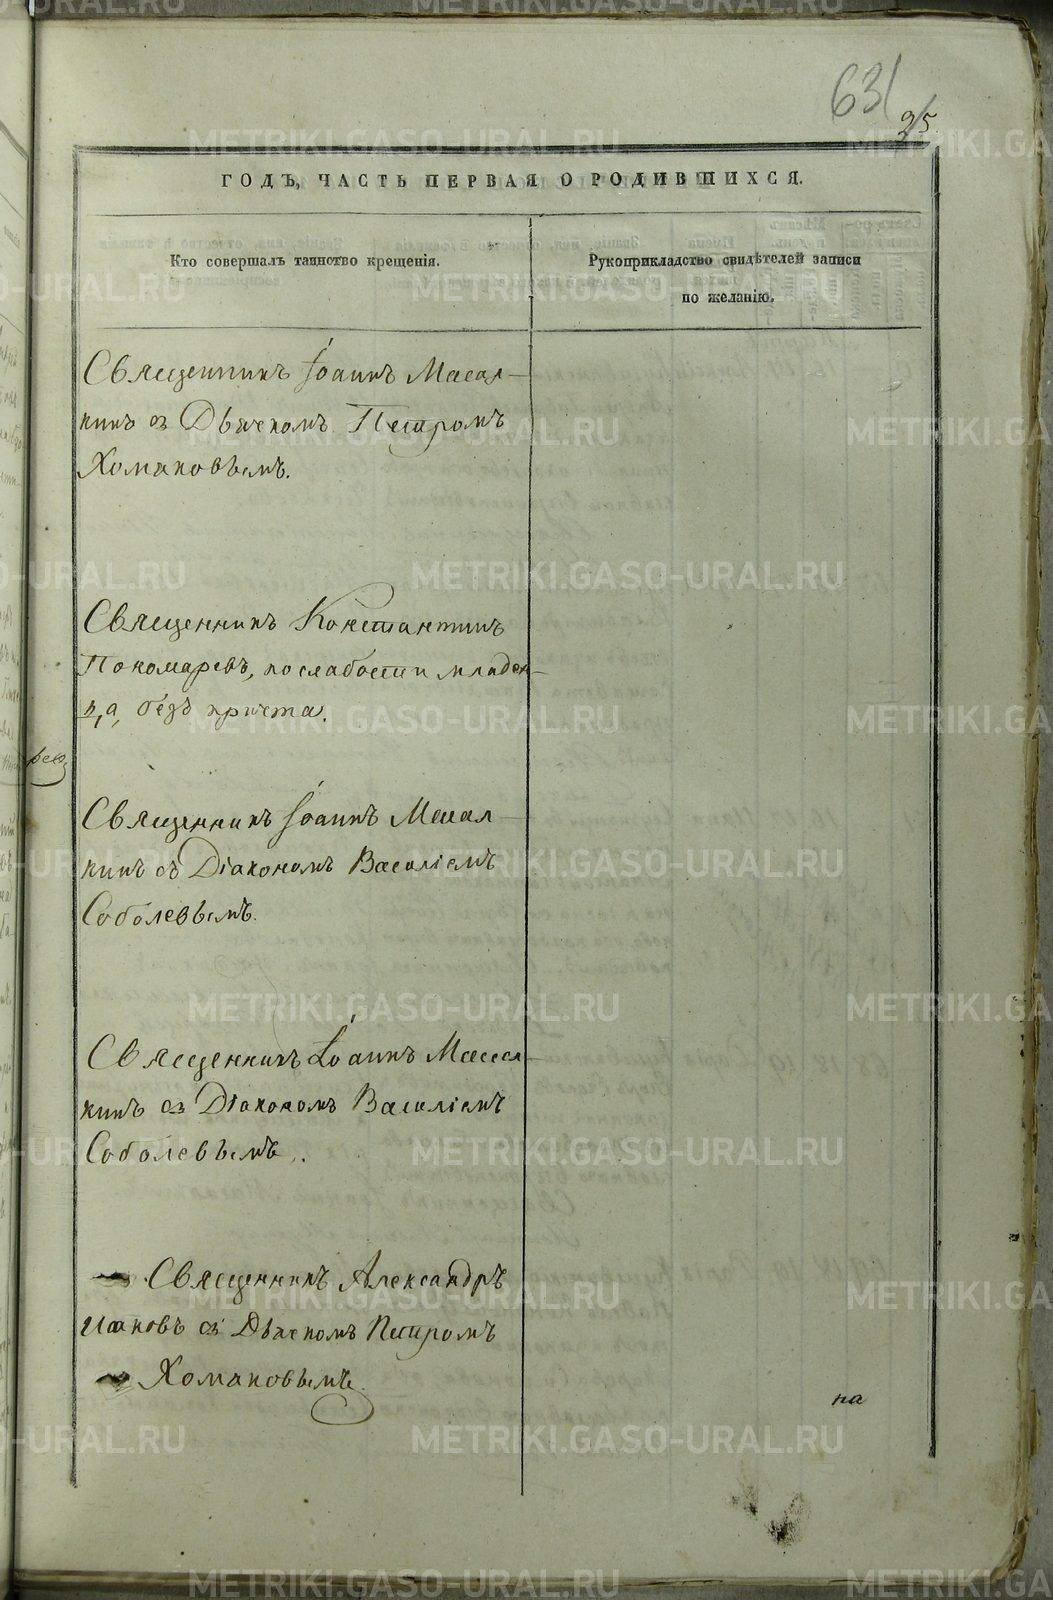 631
25
ГОДЪ, ЧАСТЬ ПЕРВАЯ О РОДИВШИХСЯ.
Кто совершалъ таинство крещенія.
Рукоприкладство свидѣтелей записи
по желанію.
Священникъ Іоаннъ Масал-
кинъ съ Дьячкомъ Петромъ
Хомяковымъ.
Священникъ Константинъ
Пономаревъ, по слабости младен-
ца, безъ причта.
Священникъ Іоаннъ Масал-
кинъ съ Діакономъ Василіемъ
Соболевымъ.
Священникъ Іоаннъ Масал-
кинъ съ Діакономъ Василіемъ
Соболевымъ.
Священникъ Александръ
съ Дьячкомъ Петромъ
Хомяковымъ.
на
METRIKI.GASO-URAL.RU